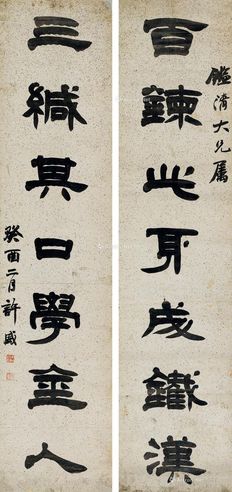 百鍊此身成鐵漢
鑑清大兄屬
三緘其口學金人
癸酉二月許威